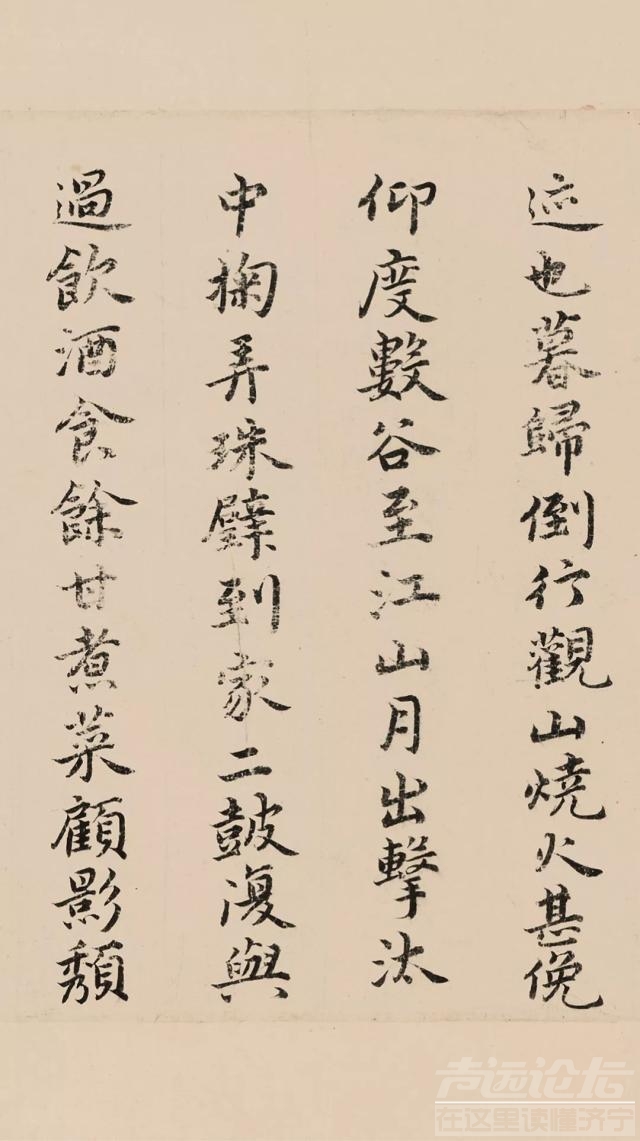 迹也暮歸倒行觀山燒火甚俛
仰度數谷至江山月出擊汰
中掬弄珠璧到家二鼓復與
過飲酒食餘甘煮菜顧影頹
声远论坛
在这里读懂济宁